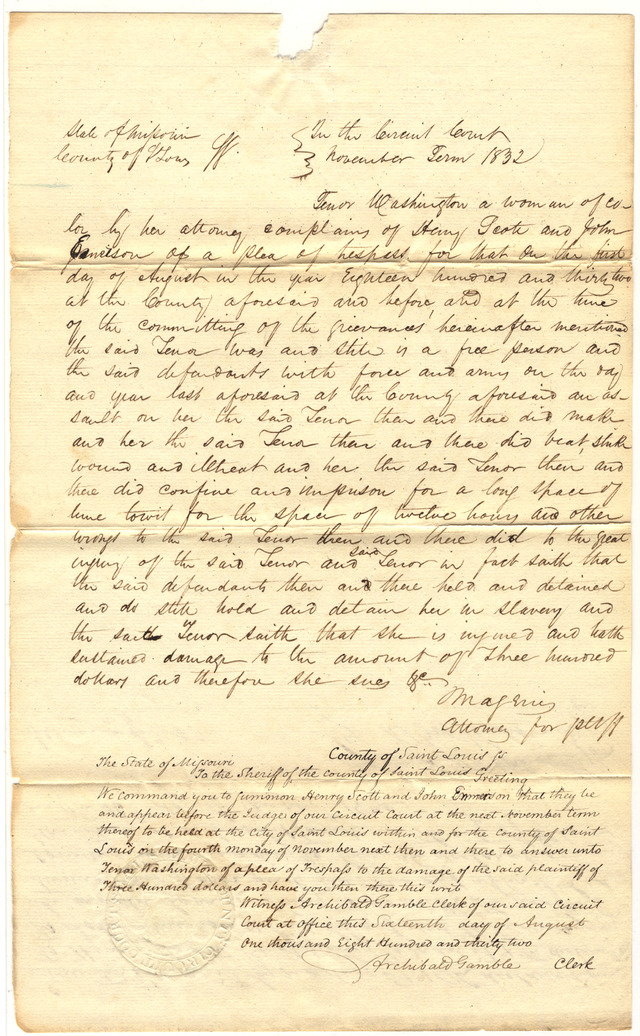 State of Missouri
County of St Louis } ss.
In the Circuit Court
November Term 1832
Tenor Washington a woman of co-
lor by her attorney complains of Henry Scott and John
Emerson of a plea of trespass for that on the first
day of August in the year Eighteen hundred and thirty two
at the County aforesaid and before, and at the time
of the committing of the grievances hereinafter mentioned
the said Tenor was and still is a free person and
the said defendants with force and arms on the day
and year last aforesaid at the County aforesaid an as-
sault on her the said Tenor then and there did make
and her the said Tenor then and there did beat, strike
wound and illtreat and her the said Tenor then and
there did confine and imprison for a long space of
time towit for the space of twelve hours and other
wrongs to the said Tenor then and there did to the great
injury of the said Tenor and said Tenor in fact saith that
the said defendants then and there held and detained
and do still hold and detain her in slavery and
the said Tenor saith that she is injured and hath
sustained damage to the amount of Three hundred
dollars and therefore she sues &c.
Attorney for pltff
The State of Missouri County of Saint Louis ss
To the Sheriff of the county of Saint Louis Greeting
We command you to summon Henry Scott and John Emmerson that they be
and appear before the Judge of our Circuit Court at the next November term
thereof to be held at the City of Saint Louis within and for the county of Saint
Louis on the fourth monday of November next then and there to answer unto
Tenor Washington of a plea of Trespass to the damage of the said plaintiff of
Three Hundred dollars and have you then there this writ
Witness Archibald Gamble Clerk of our said Circuit
Court at office this Sixteenth day of August
One thousand Eight Hundred and thirty two
Archibald Gamble Clerk